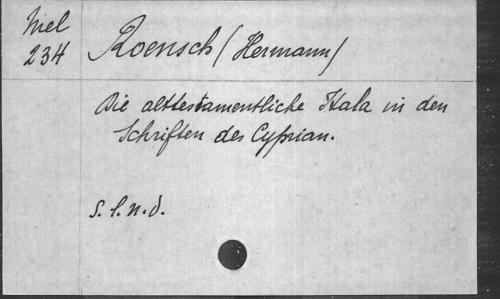 Niel
234
Roensch (Hermann)
Die alttestamentliche Itala in den
Schriften des Cyprian.
S. l. n. d.